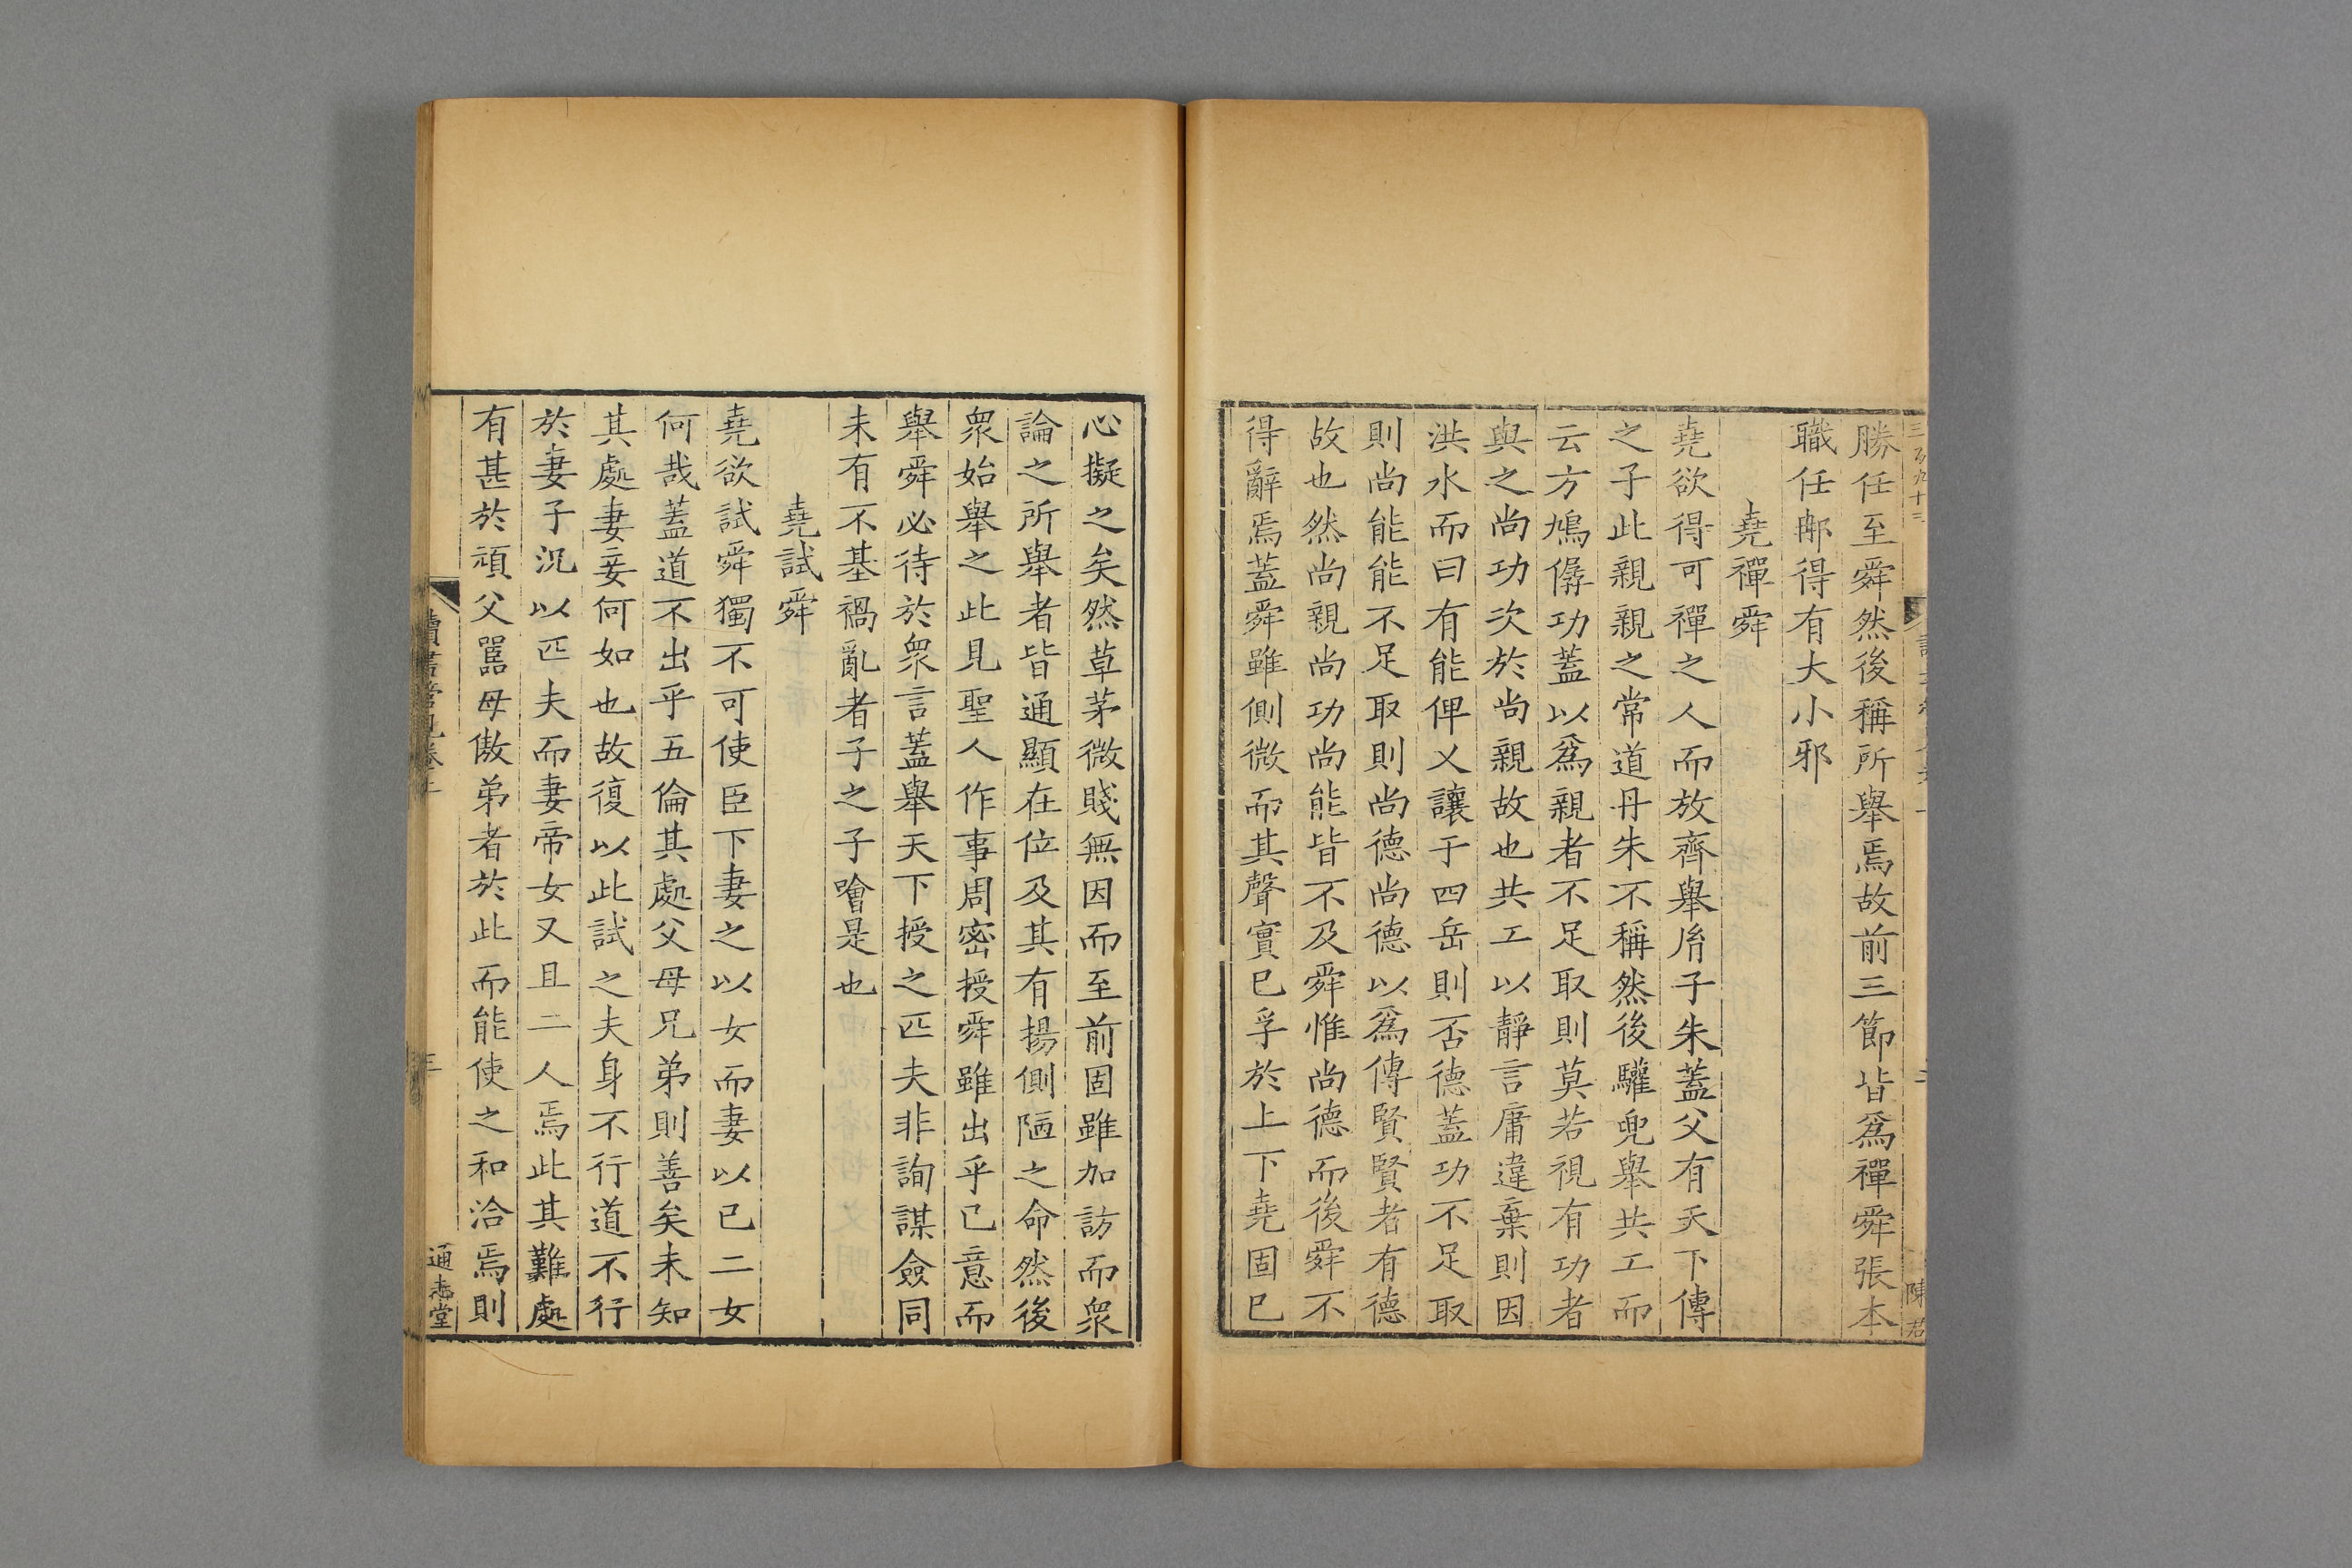 三百九十三
陳君
勝任至舜然後稱所舉焉故前三節皆爲禪舜張本
職任郍得有大小邪
堯禪舜
堯欲得可禪之人而放齊舉胤子朱蓋父有天下傳
之子此親親之常道丹朱不稱然後驩兜舉共工而
云方鳩僝功蓋以爲親者不足取則莫若視有功者
與之尚功次於尚親故也共工以靜言庸違棄則因
洪水而曰有能俾乂讓于四岳則否德蓋功不足取
則尚能能不足取則尚德尚德以爲傳賢賢者有德
故也然尚親尚功尚能皆不及舜惟尚德而後舜不
得辭焉蓋舜雖側微而其聲實已孚於上下堯固已
心擬之矣然草茅微賤無因而至前固雖加訪而衆
論之所舉者皆通顯在位及其有揚側陋之命然後
衆始舉之此見聖人作事周密授舜雖出乎已意而
舉舜必待於衆言蓋舉天下授之匹夫非詢謀僉同
未有不基禍亂者子之子噲是也
堯試舜
堯欲試舜獨不可使臣下妻之以女而妻以已二女
何哉蓋道不出乎五倫其處父母兄弟則善矣未知
其處妻妾何如也故復以此試之夫身不行道不行
於妻子況以匹夫而妻帝女又且二人焉此其難處
有甚於頑父嚚母傲弟者於此而能使之和洽焉則
讀書管見卷上
三
通志堂